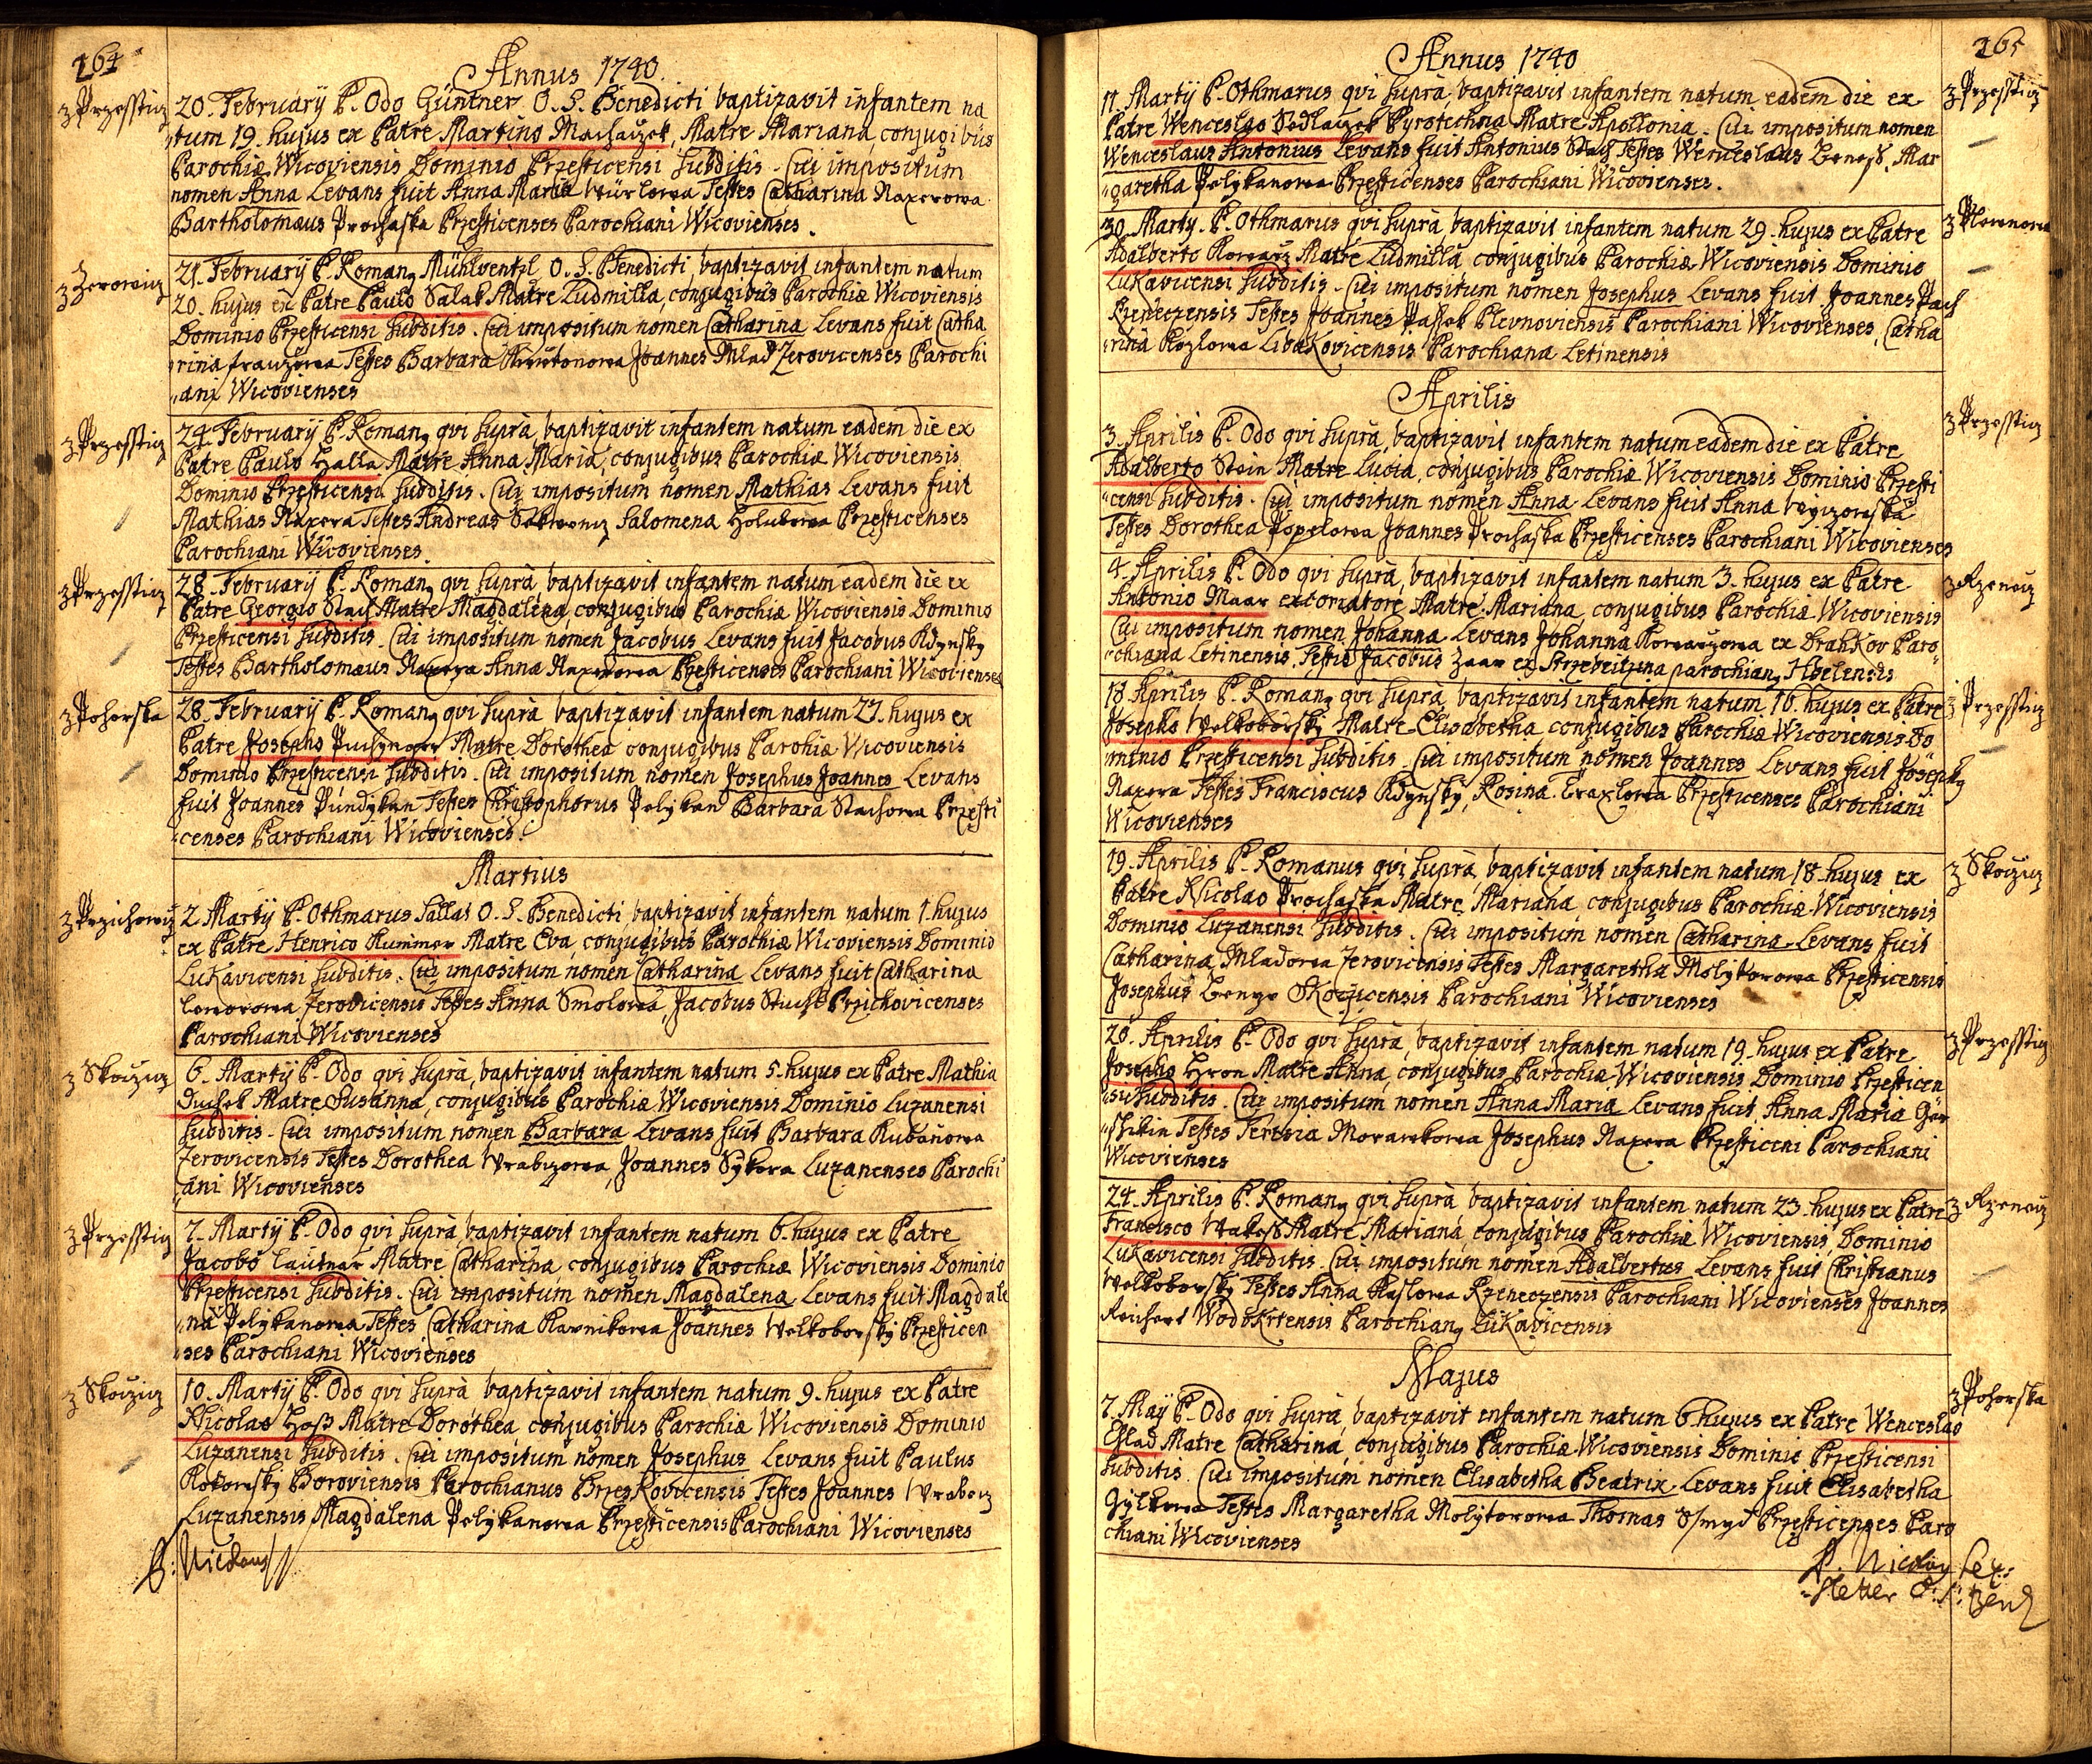 264
Annus 1740.
z Przesstiz
20. February P. Odo Güntner O. S. Benedicti baptizavit infantem na
tum 19. hujus ex Patre Martino Machaczek, Matre Mariana, conjugibus
Parochiæ Wicoviensis Dominio Przesticensi subditis. Cui impositum
nomen Anna Levans fuit Anna Maria Testes Catharina Naxerowa
Bartholomæus Prochaska Przesticenses Parochiani Wicovienses.
z Zerowiz
21. February P. Roman9 Mühlwentzl O. S. Benedicti, baptizavit infantem natum
20. hujus ex Patre Paulo Salak Matre Ludmilla, conjugibus Parochiæ Wicoviensis
Dominio Przesticensi subditis. Cui impositum nomen Catharina Levans fuit Catha
rina Testes Barbara Joannes Mlad Zerovicenses Parochi
ani Wicovienses
z Przesstiz
24. February P. Roman9 qvi supra, baptizavit infantem natum eadem die ex
Patre Paulo Halla Matre Anna Maria, conjugibus Parochiæ Wicoviensis
Dominio Przesticensi subditis. Cui impositum nomen Mathias Levans fuit
Mathias Naxera Testes Andreas Salomena Holubowa Przesticenses
Parochiani Wicovienses
z Przesstiz
28. February P. Roman9 qvi supra, baptizavit infantem natum eadem die ex
Patre Georgio Stach Matre Magdalena, conjugibus Parochiæ Wicoviensis Dominio
Przesticensi subditis. Cui impositum nomen Jacobus Levans fuit Jacobus Kdynsky
Testes Bartholomæus Naxera Anna Naxerowa Przesticenses Parochiani Wicovienses
z Pohorska
28. February P. Roman9 qvi supra baptizavit infantem natum 27. hujus ex
Patre Josepho Matre Dorothea conjugibus Parohiæ Wicoviensis
Dominio Przesticensi subditis. Cui impositum nomen Josephus Joannes Levans
fuit Joannes Pundykan Testes Christophorus Pelykan Barbara Stachowa Przesti
censes Parochiani Wicovienses.
Martius
z Przichowiz
2. Marty P. Othmarus Sallas O. S. Benedicti, baptizavit infantem natum 1. hujus
ex Patre Henrico Kummer Matre Eva, conjugibus Parochiæ Wicoviensis Dominio
Lukavicensi subditis. Cui impositum nomen Catharina Levans fuit Catharina
Zerovicensis Testes Anna Smolowa, Jacobus Przichovicenses
Parochiani Wicovienses
z Skocziz
6. Marty P. Odo qvi supra, baptizavit infantem natum 5. hujus ex Patre Mathia
Duchek Matre Susanna, conjugibus Parochiæ Wicoviensis Dominio Luzanensi
subditis. Cui impositum nomen Barbara Levans fuit Barbara
Zerovicensis Testes Dorothea Wrabczowa, Joannes Sykora Luzanenses Parochi
ani Wicovienses
z Przesstiz
7. Marty P. Odo qvi supra, baptizavit infantem natum 6. hujus ex Patre
Jacobo Lautner Matre Catharina, conjugibus Parochiæ Wicoviensis Dominio
Przesticensi subditis. Cui impositum nomen Magdalena Levans fuit Magdale
na Pelykanowa Testes Catharina Joannes Welkoborsky Przesticen
ses Parochiani Wicovienses
z Skocziz
10. Marty P. Odo qvi supra baptizavit infantem natum 9. hujus ex Patre
Nicolao Matre Dorothea conjugibus Parochiæ Wicoviensis Dominio
Luzanensi subditis. Cui impositum nomen Josephus Levans fuit Paulus
Boroviensis Parochianus Testes Joannes
Luzanensis Magdalena Pelykanowa Przesticensis Parochiani Wicovienses
P: Nicolaus
265
Annus 1740
z Przesstiz
11. Marty P. Othmarus qvi supra, baptizavit infantem natum eadem die ex
Patre Wenceslao Sedlaczek Pyrotechna Matre Apollonia. Cui impositum nomen
Wenceslaus Antonius Levans fuit Antonius Stach Testes Wenceslaus Benesch, Mar
garetha Pelykanowa Przesticenses Parochiani Wicovienses.
30. Marty. P. Othmarus qvi supra baptizavit infantem natum 29. hujus ex Patre
Adalberto Matre Ludmilla conjugibus Parochiæ Wicoviensis Dominio
Lukavicensi subditis. Cui impositum nomen Josephus Levans fuit Joannes
Testes Joannes Parochiani Wicovienses, Catha
rina Kozlowa Libakovicensis Parochiana Letinensis
Aprilis
z Przesstiz
3. Aprilis P. Odo qvi supra, baptizavit infantem natum eadem die ex Patre
Adalberto Stein Matre Lucia, conjugibus Parochiæ Wicoviensis Dominio Przesti
censi subditis. Cui impositum nomen Anna Levans fuit Anna
Testes Dorothea Popelowa Joannes Prochaska Przesticenses Parochiani Wicovienses
z Rzenciz
4. Aprilis P. Odo qvi supra, baptizavit infantem natum 3. hujus ex Patre
Antonio Maar excoriatore Matre Mariana, conjugibus Parochiæ Wicoviensis
Cui impositum nomen Johanna Levans Johanna ex Drahkov Paro
chiana Letinensis, Testis Jacobus ex parochian9
z Przesstiz
18. Aprilis P. Roman9 qvi supra, baptizavit infantem natum 16. hujus ex Patre
Josepho Welkoborsky Matre Elisabetha conjugibus Parochiæ Wicoviensis Do
minio Przesticensi subditis. Cui impositum nomen Joannes Levans fuit Joseph9
Naxera Testes Franciscus Kdynsky, Rosina Przesticenses Parochiani
Wicovienses
z Skocziz
19. Aprilis P. Romanus qvi supra, baptizavit infantem natum 18. hujus ex
Patre Nicolao Prochaska Matre Mariana, conjugibus Parochiæ Wicoviensis
Dominio Luzanensi subditis. Cui impositum nomen Catharina Levans fuit
Catharina Mladowa Zerovicensis Testes Margaretha Molytorowa Przesticensis
Josephus Skoczicensis Parochiani Wicovienses
z Przesstiz
20. Aprilis P. Odo qvi supra, baptizavit infantem natum 19. hujus ex Patre
Josepho Hron Matre Anna, conjugibus Parochiæ Wicoviensis Dominio Przesticen
si subditis. Cui impositum nomen Anna Maria Levans fuit Anna Maria
Testes Teresia Morawkowa Josephus Naxera Przesticeni Parochiani
Wicovienses
z Rzenciz
24. Aprilis P. Roman9 qvi supra baptizavit infantem natum 23. hujus ex Patre
Francisco Matre Mariana, conjugibus Parochiæ Wicoviensis, Dominio
Lukavicensi subditis. Cui impositum nomen Adalbertus Levans fuit Christianus
Welkoborsky Testes Anna Parochiani Wicovienses Joannes
Reichert Parochian9 Lukavicensis
Majus
z Pohorska
7. May P. Odo qvi supra, baptizavit infantem natum 6. hujus ex Patre Wenceslao
Matre Catharina, conjugibus Parochiæ Wicoviensis Dominio Przesticensi
subditis. Cui impositum nomen Elisabetha Beatrix Levans fuit Elisabetha
Testes Margaretha Molytorowa Thomas Przesticenses Paro
chiani Wicovienses
P. Nicolaus